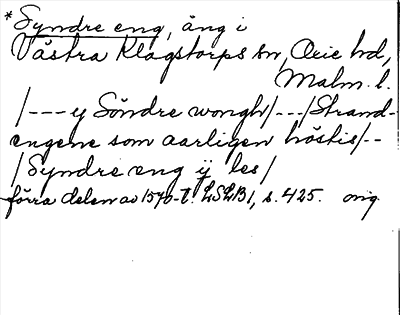 *Syndre eng, äng i
Västra Klagstorps sn, Oxie hd,
Malm. l.
/---y Söndre wongh/---/Strand-
engene som aarligen höstis/--
/Syndre eng ij les/
förra delen av 1570-t. LSLB1, s. 425. orig